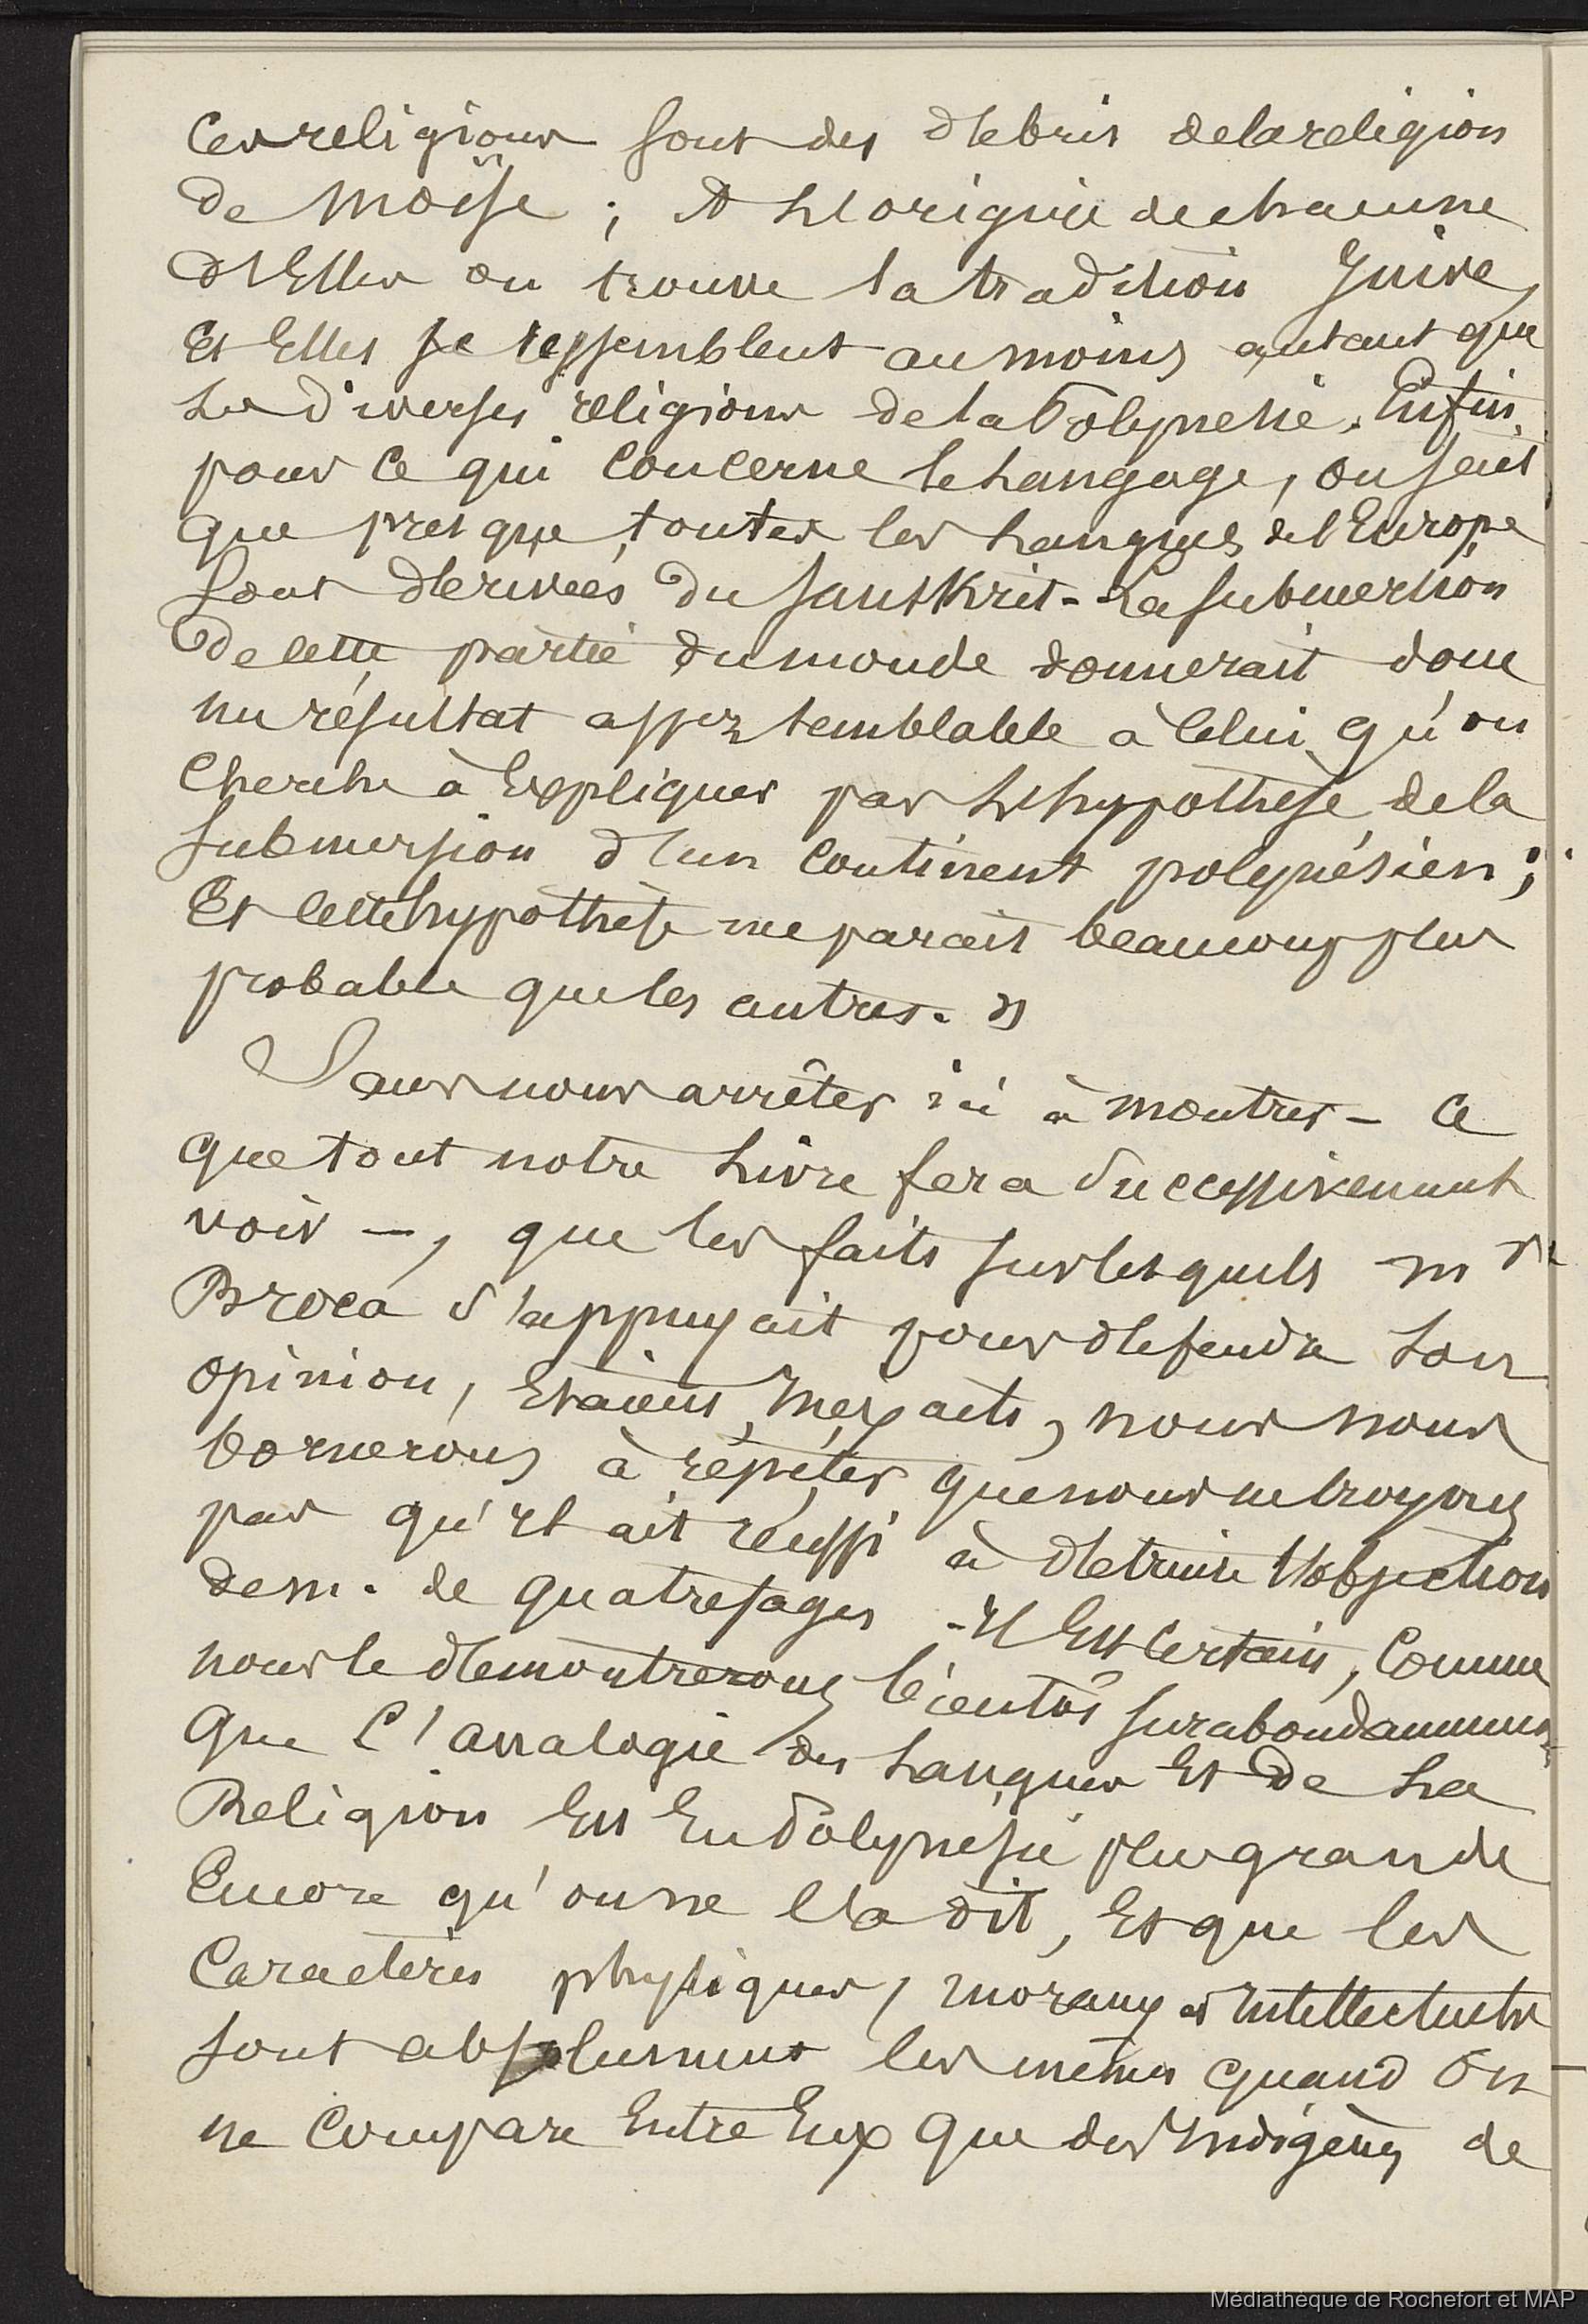 Ces religions sont des débris de la religion
de Moïse ; A l'origine de chacune
d'Elles on trouve la tradition Juive,
Et Elles se ressemblent au moins autant que
les diverses religions de la Polynésie. Enfin,
pour ce qui concerne le langage, on sait
que presque toutes les langues de l'Europe
sont dérivées du sanskrit - La submersion
de cette partie du monde donnerait donc
un résultat assez semblable à celui qu'on
cherche à Expliquer par l'hypothèse de la
submersion d'un continent polynésien ;
Et cette hypothèse me parait beaucoup plus
probable que les autres. »
Sans nous arrêter ici à montrer - ce
que tout notre livre fera successivement
voir -, que les faits sur lesquels Mr
Broca s'appuyait pour défendre son
opinion, Etaient Inexacts, nous nous
bornerons à répéter que nous ne croyons
pas qu'il ait réussi à détruire l'objection
de M. de Quatrefages - Il Est certain, comme
nous le démontrerons bientôt surabondamment,
que l'analogie des langues Et de la
Religion Est En Polynésie plus grande
Encore qu'on ne l'a dit, Et que les
Caractères physiques, moraux et Intellectuels
sont absolument les mêmes quand on
ne compare Entre Eux que des Indigènes de
Médiathèque de Rochefort et MAP